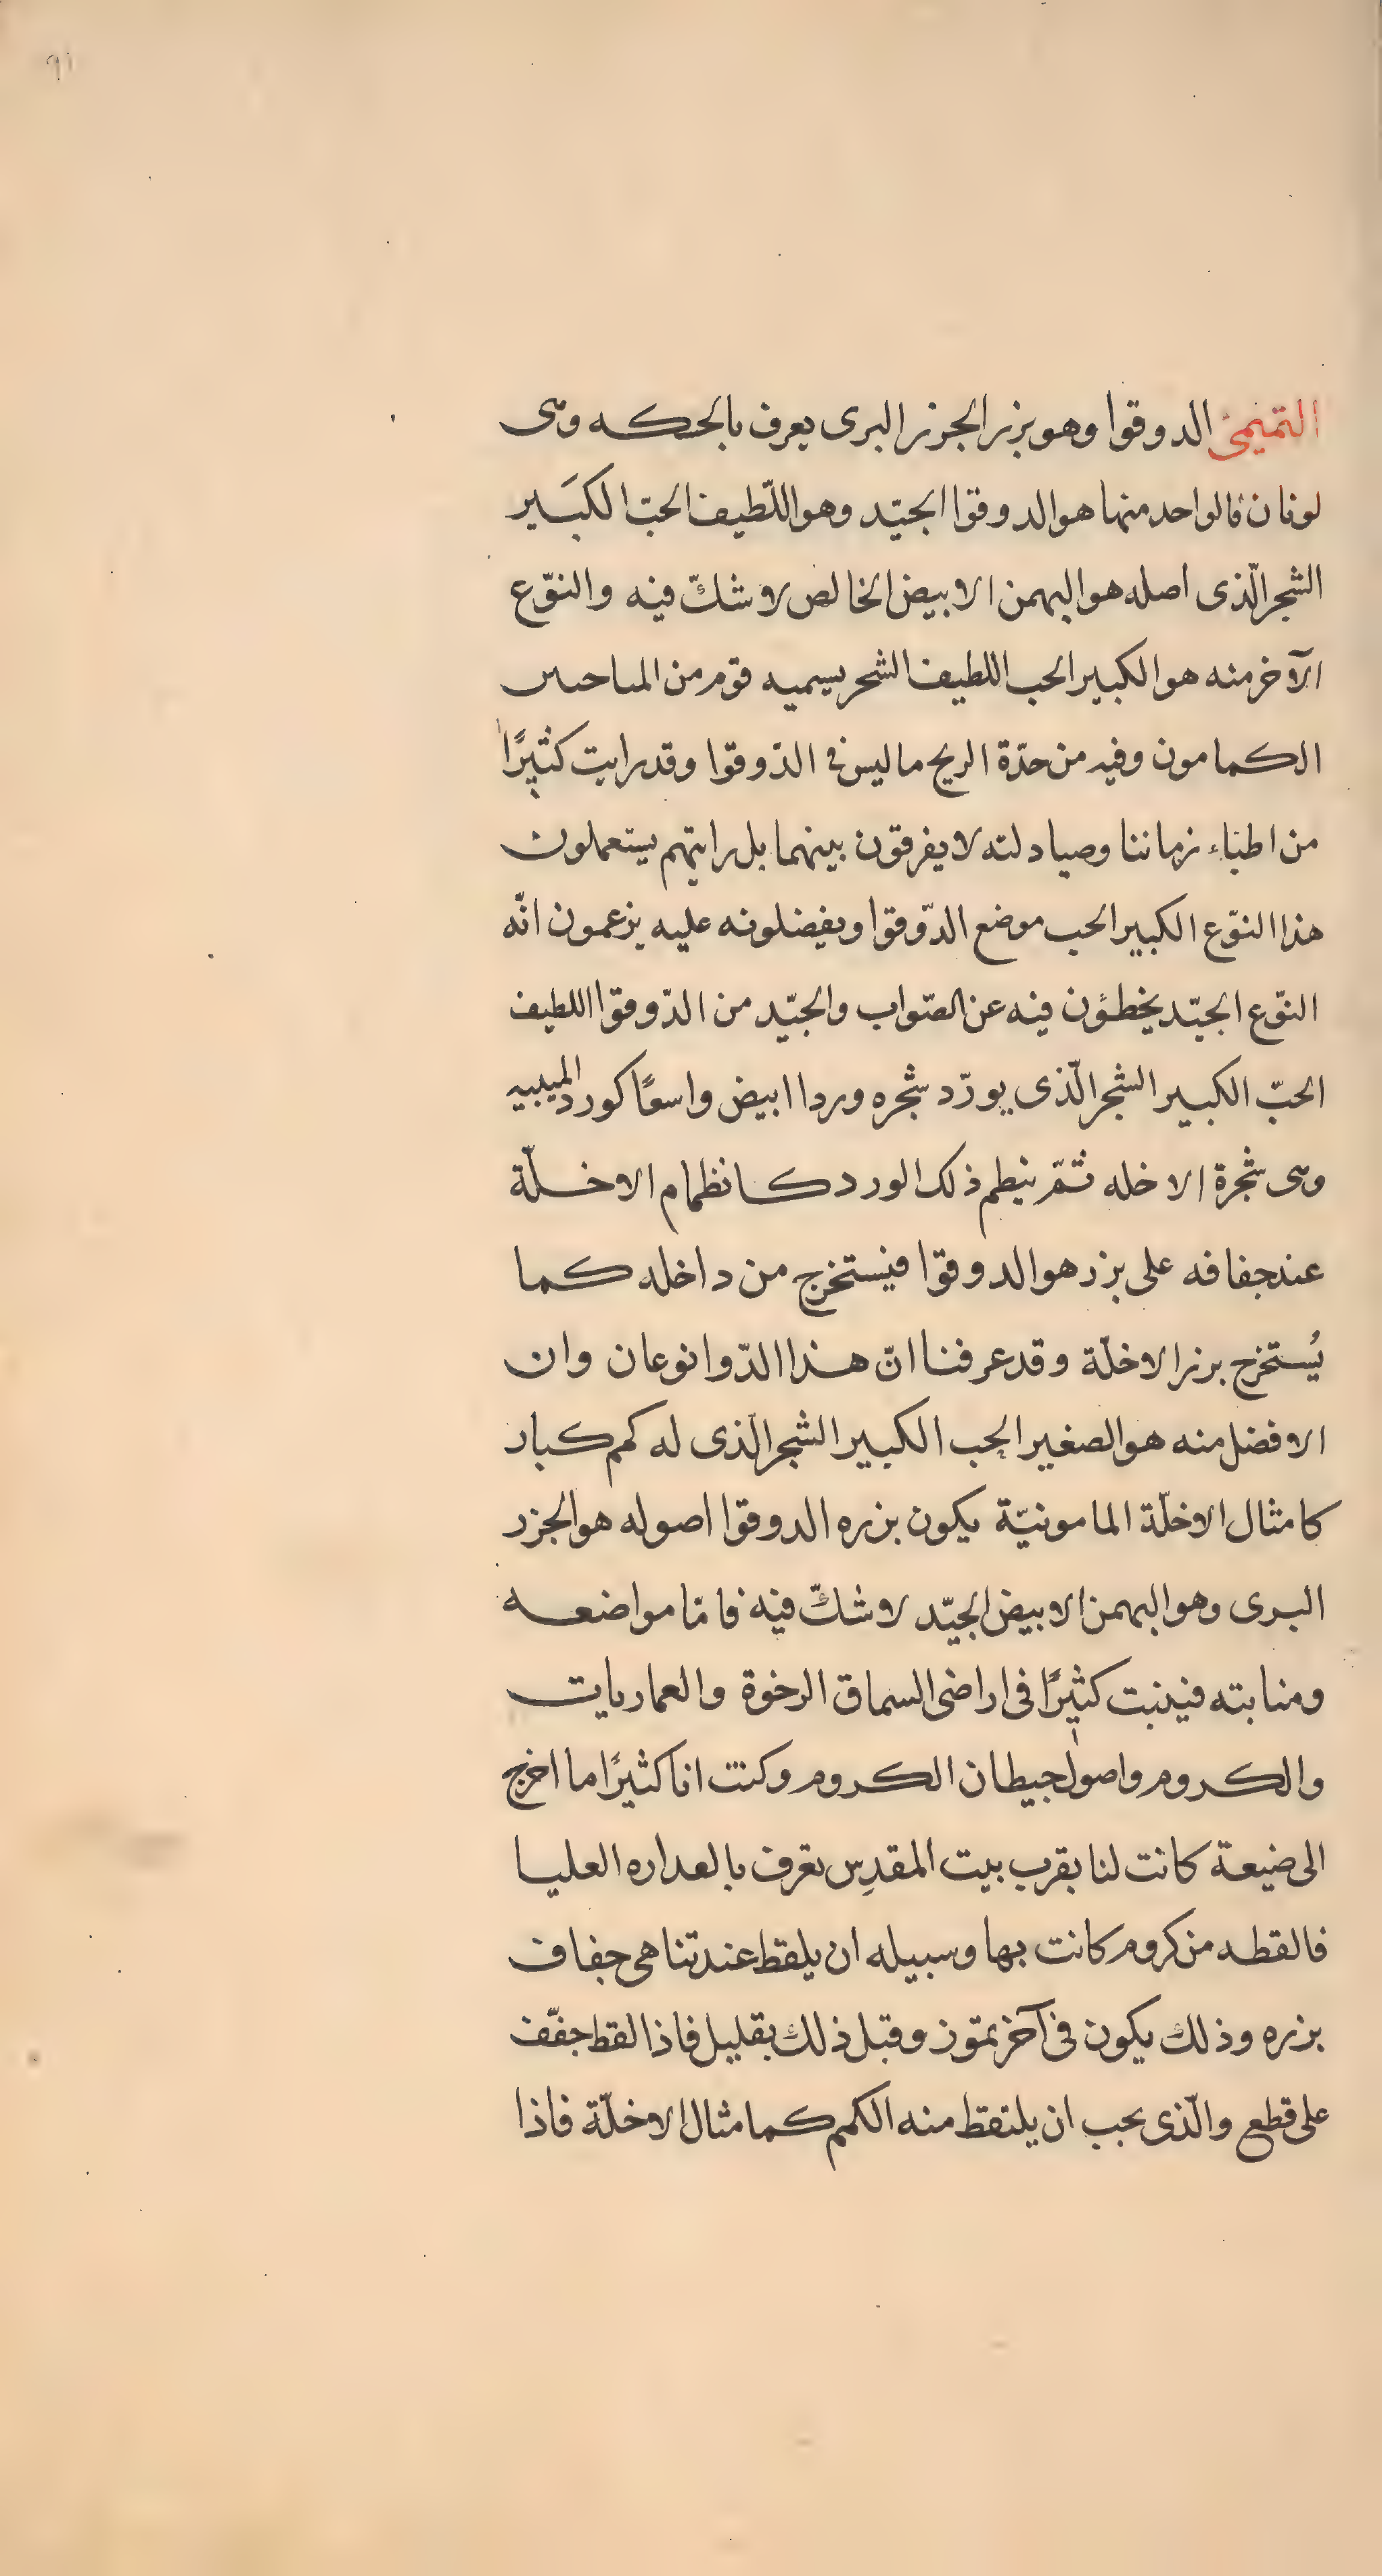 ٩١
التميمى الدوقوا وهو بزر الجزر البرى يعرف بالحسكه وهى
لونان فالواحد منها هو الدوقوا الجيّد وهو اللّطيف الحبّ الكبَير
الشجر الّذى اصله هو البهمن الابيض الخالص لا شكّ فيه والنوّع
الآخر منه هو الكبير الحب اللطيف الشجر يسميه قوم من
الكمامون وفيه من حدّة الريح ما ليس فى الدّوقوا وقد رايت كثيرًا
من اطباء زماننا وصيادلته لا يفرقون بينهما بل رايتهم يستعملون
هذا النوّع الكبير الحب موضع الدّوقوا ويفضلونه عليه يزعمون انّه
النوّع الجيّد يخطئون فيه عن الصّواب والجيّد من الدّوقوا اللطيف
الحبّ الكبير الشجر الّذى يورّد شجره وردا ابيض واسعًا كورد
وهى شجرة الاخله ثمّ ينطم ذلك الورد كانظمام الاخلّة
عند جفافه على بزر هو الدوقوّا فيستخرج من داخله كما
يُستخرج بزر الاخلّة وقد عرفنا انّ هذا الدّوا نوعان وان
الافضل منه هو الصغير الحب الكبير الشجر الّذى له كمم كبار
كامثال الاخلّة المامونيّة يكون بزره الدوقوا اصوله هو الجزر
البرى وهو البهمن الابيض الجيّد لا شكّ فيه فامّا مواضعه
ومنابته فينبت كثيرًا فى اراضى السماق الرخوة والعماريات
والكروم واصول حيطان الكروم وكنت انا كثيرًا ما اخرج
الى ضيعة كانت لنا بقرب بيت المقدِس تعرف العليا
فالقطه من كروم كانت بها وسبيله ان يلقط عند تناهى جفاف
بزره وذلك يكون فى آخر تموّز وقبل ذلك بقليل فاذا القط جفّف
على قطع والّذى يجب ان يلتقط منه الكمم كما مثال الاخلّة فاذا